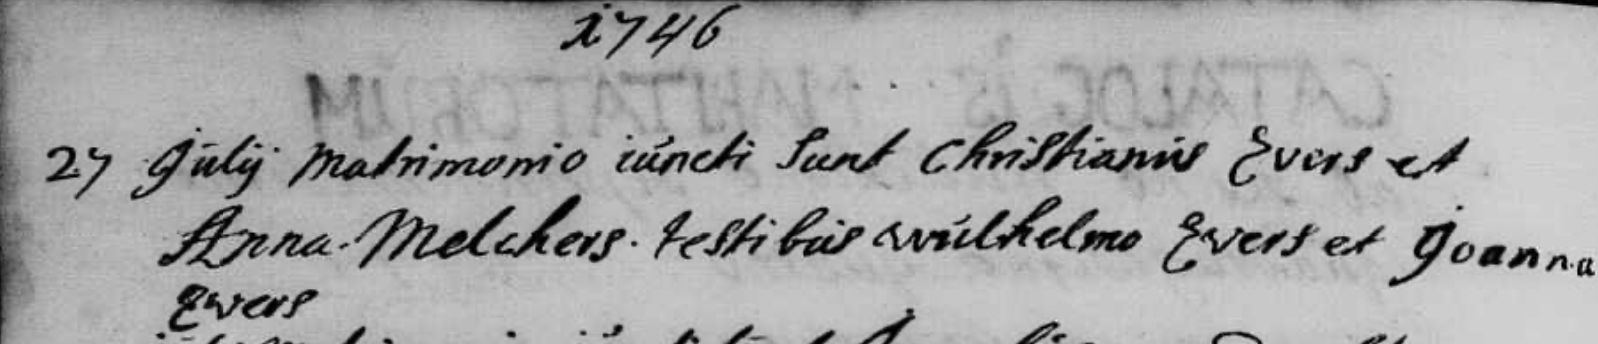 1746
27 Julij Matrimonio iuncti sunt Christianus Evers et
Anna Melchers. testibus Wulhelmo Evers et Joanna
Evers